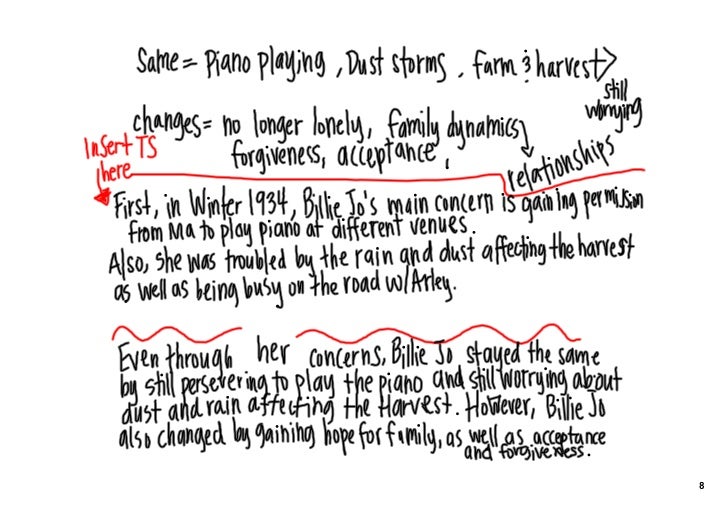 Same = Piano playing, Dust storms, farm & harvest>
still
worrying
changes = no longer lonely, family dynamics,
forgiveness, acceptance,
relationships
Insert TS
here
First, in Winter 1934, Billie Jo's main concern is gaining permission
from Ma to play piano at different venues.
Also, she was troubled by the rain and dust affecting the harvest
as well as being busy on the road w/Arley.
Even through her concerns, Billie Jo stayed the same
by still persevering to play the piano and still worrying about
dust and rain affecting the Harvest. However, Billie Jo
also changed by gaining hope for family, as well as acceptance
and forgiveness.
8